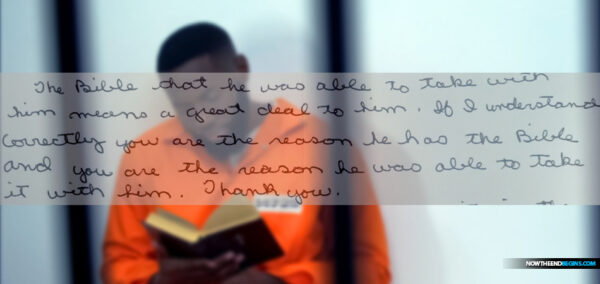 The Bible that he was able to take with
him means a great deal to him. If I understand
correctly you are the reason he has the Bible
and you are the reason he was able to take
it with him. Thank you.
NOWTHEENDBEGINS.COM